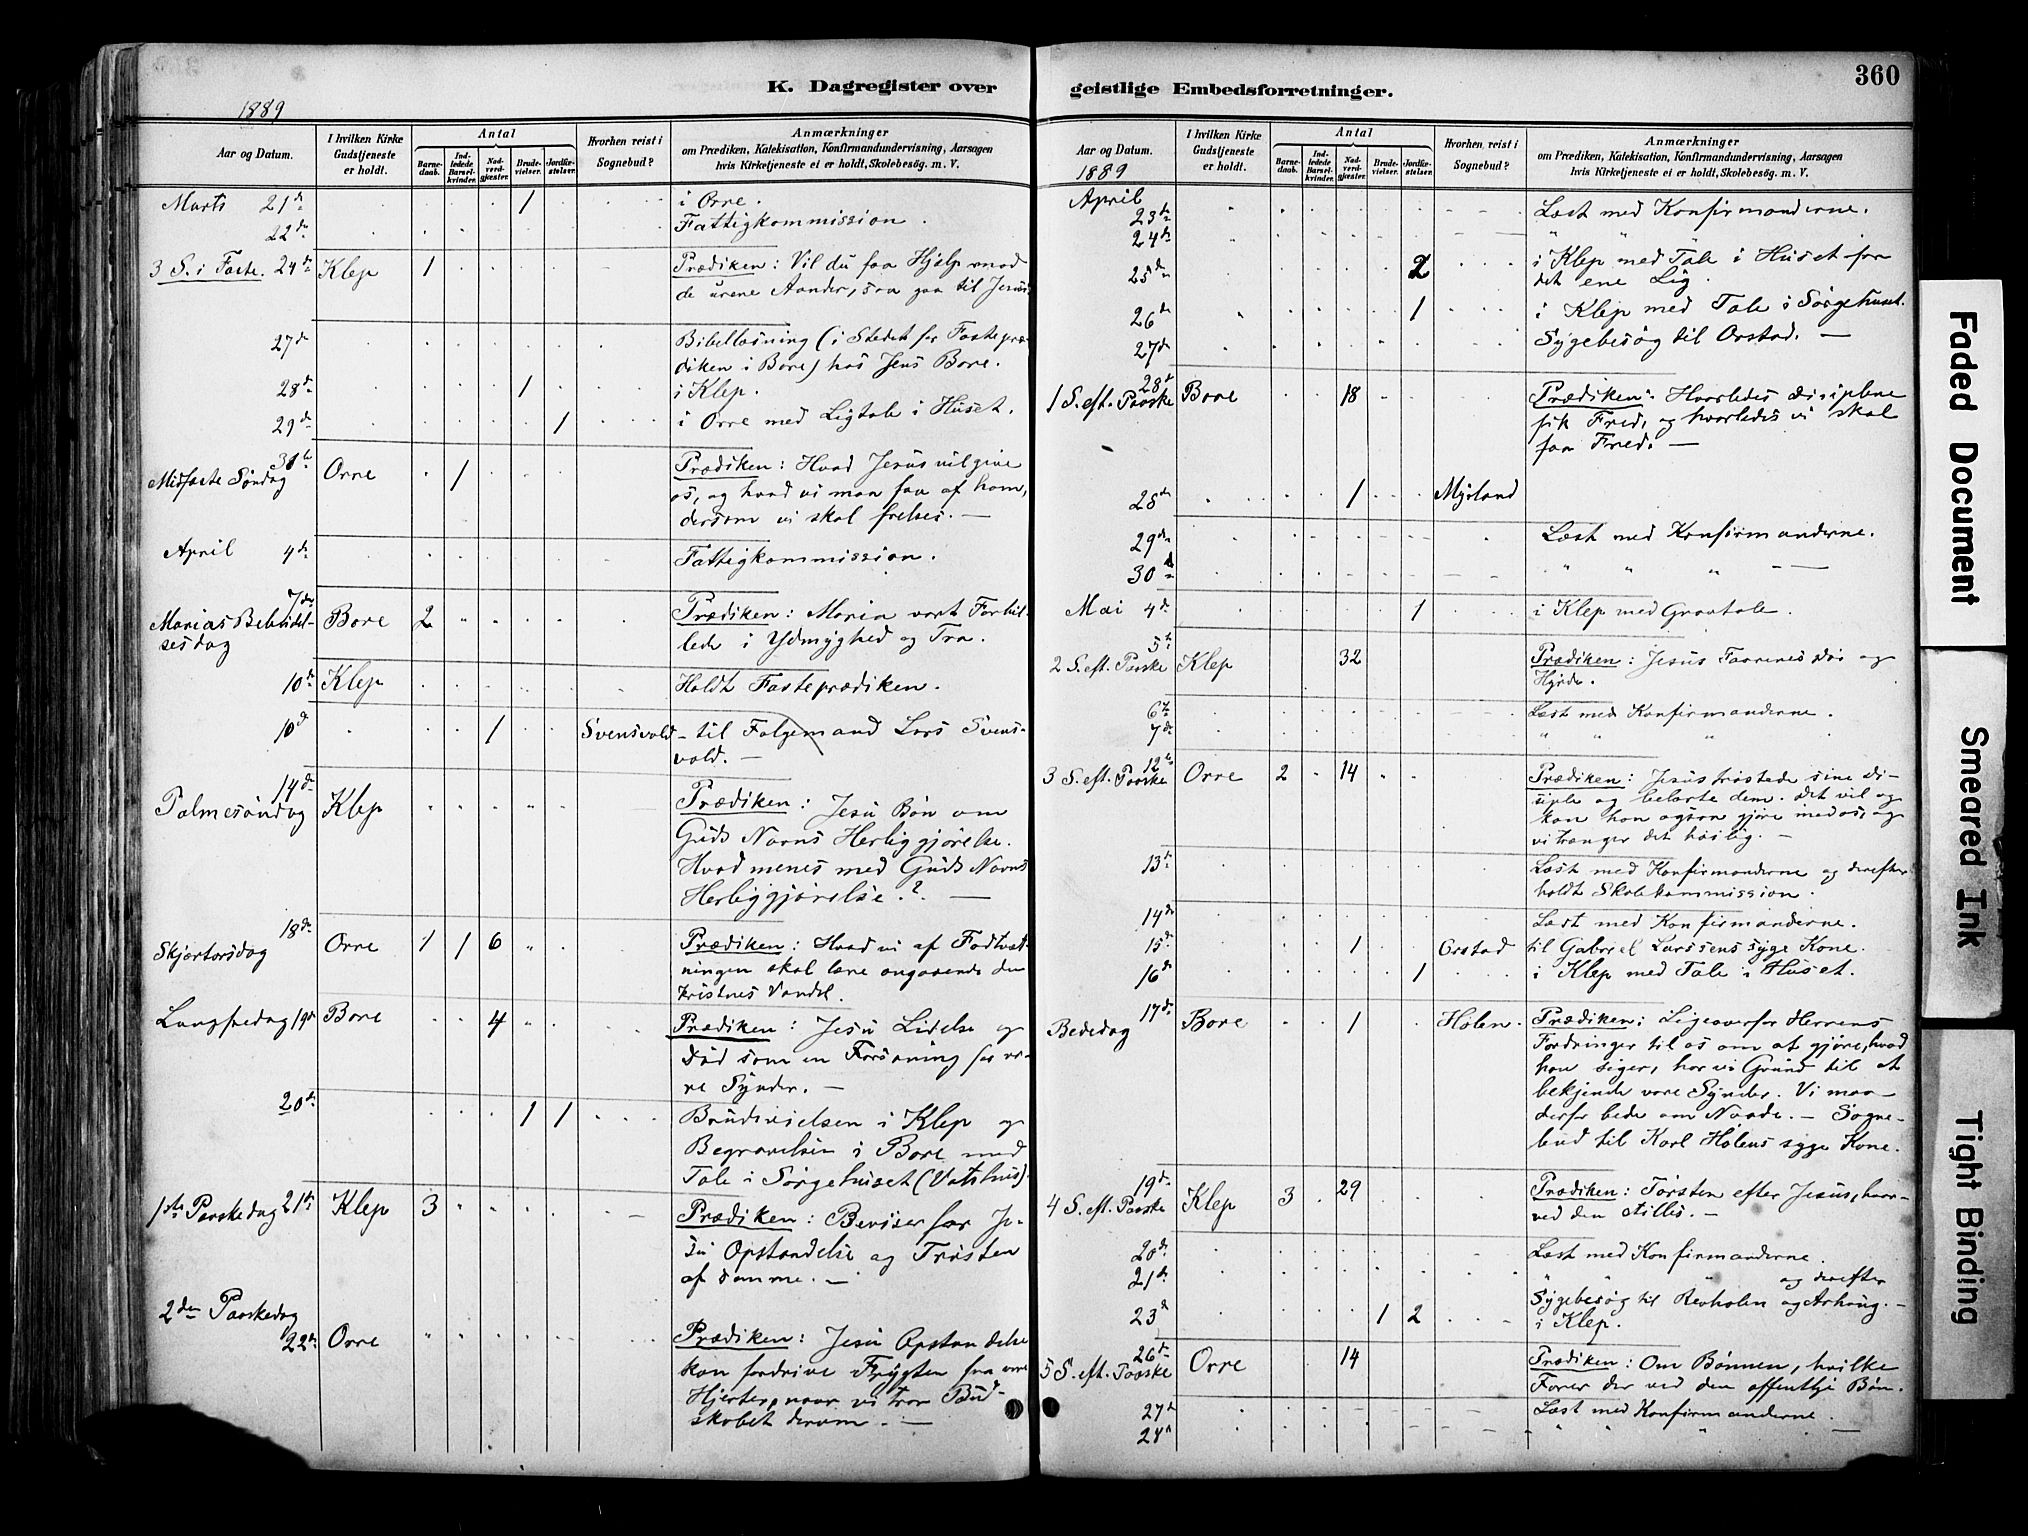 K. Dagregister over
1889
Aar og Datum.
I hvilken Kirke Gudstjeneste er holdt.
Antal
Barnedaab.
Indledede Barselkvinder.
Nadverdgjæster.
Brudevielser.
Jordfæstelser.
Hvorhen reist i Sognebud?
Anmærkninger
om Prædiken, Katekisation, Konfirmandundervisning, Aarsagen
hvis Kirketjeneste ei er holdt, Skolebesøg. m. V.
Marts 21de 1 i Orre.
22de Fattigkommission.
3 S. i Faste. 24de Klep 1 Prædiken: Vil du faa Hjælp mod
de urene Aander, saa gaa til Jesus.
27de Bibellæsning (i Stedet for Fastepræ-
diken i Bore) hos Jens Bore.
28de 1 i Klep.
29de 1 i Orre med Ligtale i Huset.
31te
Midfaste Søndag Orre 1 Prædiken: Hvad Jesus vil give
os, og hvad vi maa faa af ham,
dersom vi skal frelses. —
April 4de Fattigkommission.
7de
Marias Bebudel- Bore 2 Prædiken: Maria vort Forbil-
sesdag lede i Ydmyghed og Tro.
10de Klep Holdt Fasteprædiken.
10d 1 Svensvold - til Folgemand Lars Svens-
vold. —
14de
Palmesøndag Klep Prædiken: Jesu Bøn om
Guds Navns Herliggjørelse.
Hvad menes med Guds Navns
Herliggjørelse? —
18de
Skjærtorsdag Orre 1 1 6 Prædiken: Hvad vi af Fodtvæt-
ningen skal lære angaaende den
kristnes Vandel.
Langfredag 19de Bore 4 Prædiken: Jesu Lidelse og
Død som en Forsoning for vo-
re Synder. —
20de 1 1 Brudevielsen i Klep og
Begravelsen i Bore med
Tale i Sørgehuset (Vatshus).
1ste Paaskedag 21de Klep 3 Prædiken: Beviser for Je-
su Opstandelse og Trøsten
af samme. —
2den Paaskedag
22de Orre Prædiken: Jesu Opstandelse
kan fordrive Frygten fra vore
Hjerter, naar vi tror Bud-
skabet derom. —
geistlige Embedsforretninger.
360
Aar og Datum.
1889
I hvilken Kirke Gudstjeneste er holdt.
Antal
Barnedaab.
Indledede Barselkvinder.
Nadverdgjæster.
Brudevielser.
Jordfæstelser.
Hvorhen reist i Sognebud?
Anmærkninger
om Prædiken, Katekisation, Konfirmandundervisning, Aarsagen
hvis Kirketjeneste ei er holdt, Skolebesøg. m. V.
April
23de Læst med Konfirmanderne.
24de " " "
25de 2 i Klep med Tale i Huset for
det ene Lig.
26de 1 i Klep med Tale i Sørgehuset.
27de Sygebesøg til Orstad. —
28de
1 S. eft. Paaske Bore 18 Prædiken: Hvorledes Disiplene
fik Fred, og hvorledes vi skal
faa Fred. —
28de 1 Myrland
29de Læst med Konfirmanderne.
30de " " " —
Mai 4de 1 i Klep med Gravtale.
5te
2 S. eft. Paaske Klep 32 Prædiken: Jesus Faarenes Dør og
Hyrde.
6te Læst med Konfirmanderne.
7de " " "
12te
3 S. eft. Paaske Orre 2 14 Prædiken: Jesus trøstede sine Di-
siple og belærte dem. Det vil og
kan han ogsaa gjøre med os, og
vi trænger det høilig. —
13de Læst med Konfirmanderne og derefter
holdt Skolekommission.
14de Læst med Konfirmanderne.
15de 1 Orstad til Gabriel Larssens syge Kone.
16de 1 i Klep med Tale i Huset.
17de
Bededag Bore 1 Holen. Prædiken: Ligeoverfor Herrens
Fordringer til os om at gjøre, hvad
han siger, har vi Grund til at
bekjende vore Synder. Vi maa
derfor bede om Naade. — Sogne-
bud til Karl Holens syge Kone.
19de
4 S. eft. Paaske Klep 3 29 Prædiken: Tørsten efter Jesus, hvor-
ved den stilles. —
20de Læst med Konfirmanderne.
21de " " " og derefter
Sygebesøg til Revholen og Arhaug. —
23d 1 2 i Klep.
26de
5 S. eft. Paaske Orre 14 Prædiken: Om Bønnen, hvilke
Farer der ved den offentlje Bøn.
27de Læst med Konfirmanderne.
28de " " " —
Faded Document
Smeared Ink
Tight Binding